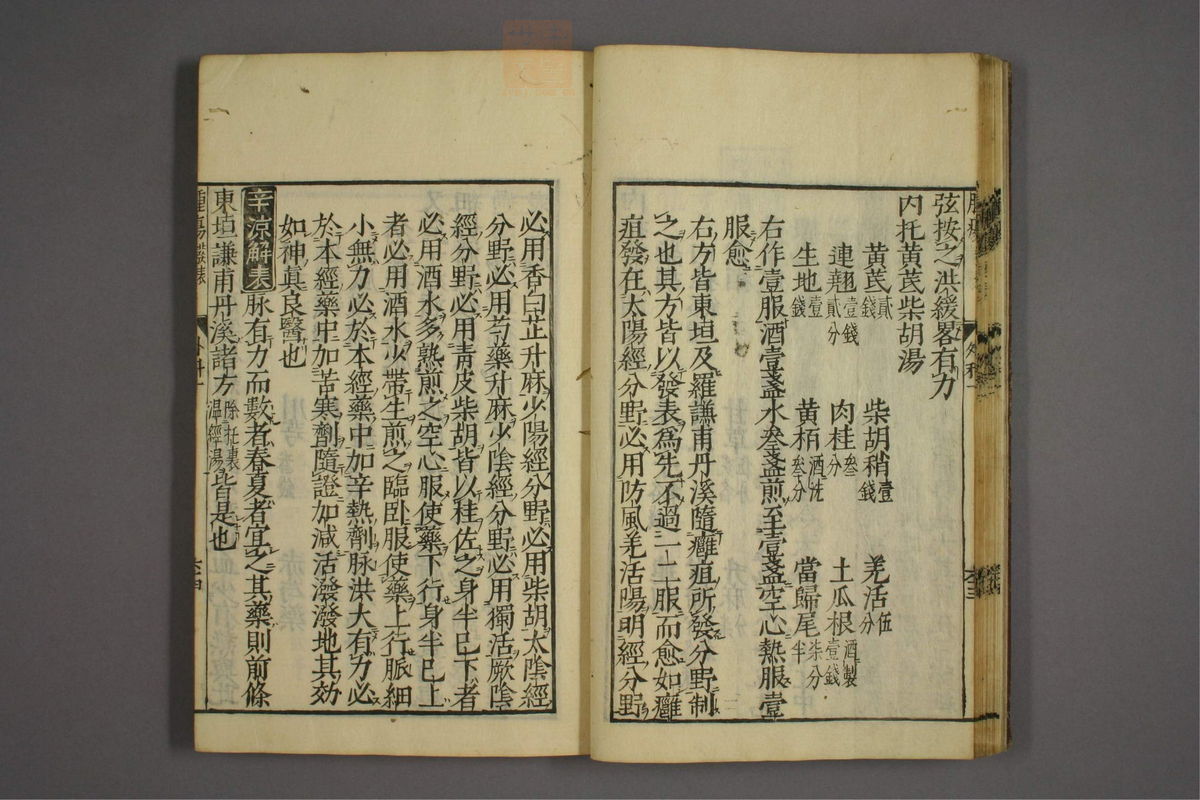 弦按之洪緩畧有力
内托黄芪柴胡湯
黄芪貳錢 柴胡稍壹錢 羌活伍分
連翹壹錢貳分 肉桂叁分 土瓜根酒製壹錢
生地壹錢 黄栢酒洗叁分 當歸尾柒分半
右作壹服酒壹盞水叁盞煎至壹盞空心熱服壹
服愈
右方皆東垣及羅謙甫丹溪隨癰疽所發分野制
之也其方皆以發表為先不過一二服而愈如癰
疽發在太陽經分野必用防風羌活陽明經分野
必用香白芷升麻少陽經分野必用柴胡太陰經
分野必用芍藥升麻少陰經分野必用獨活厥陰
經分野必用青皮柴胡皆以桂佐之身半已下者
必用酒水多熟煎之空心服使藥下行身半已上
者必用酒水少帶生煎之臨卧服使藥上行脈細
小無力必於本經藥中加辛熱劑脉洪大有力必
於本經藥中加苦寒劑隨證加減活潑潑地其効
如神真良醫也
辛凉解表 脉有力而數者春夏者宜之其藥則前條
東垣謙甫丹溪諸方除托裏温經湯皆是也